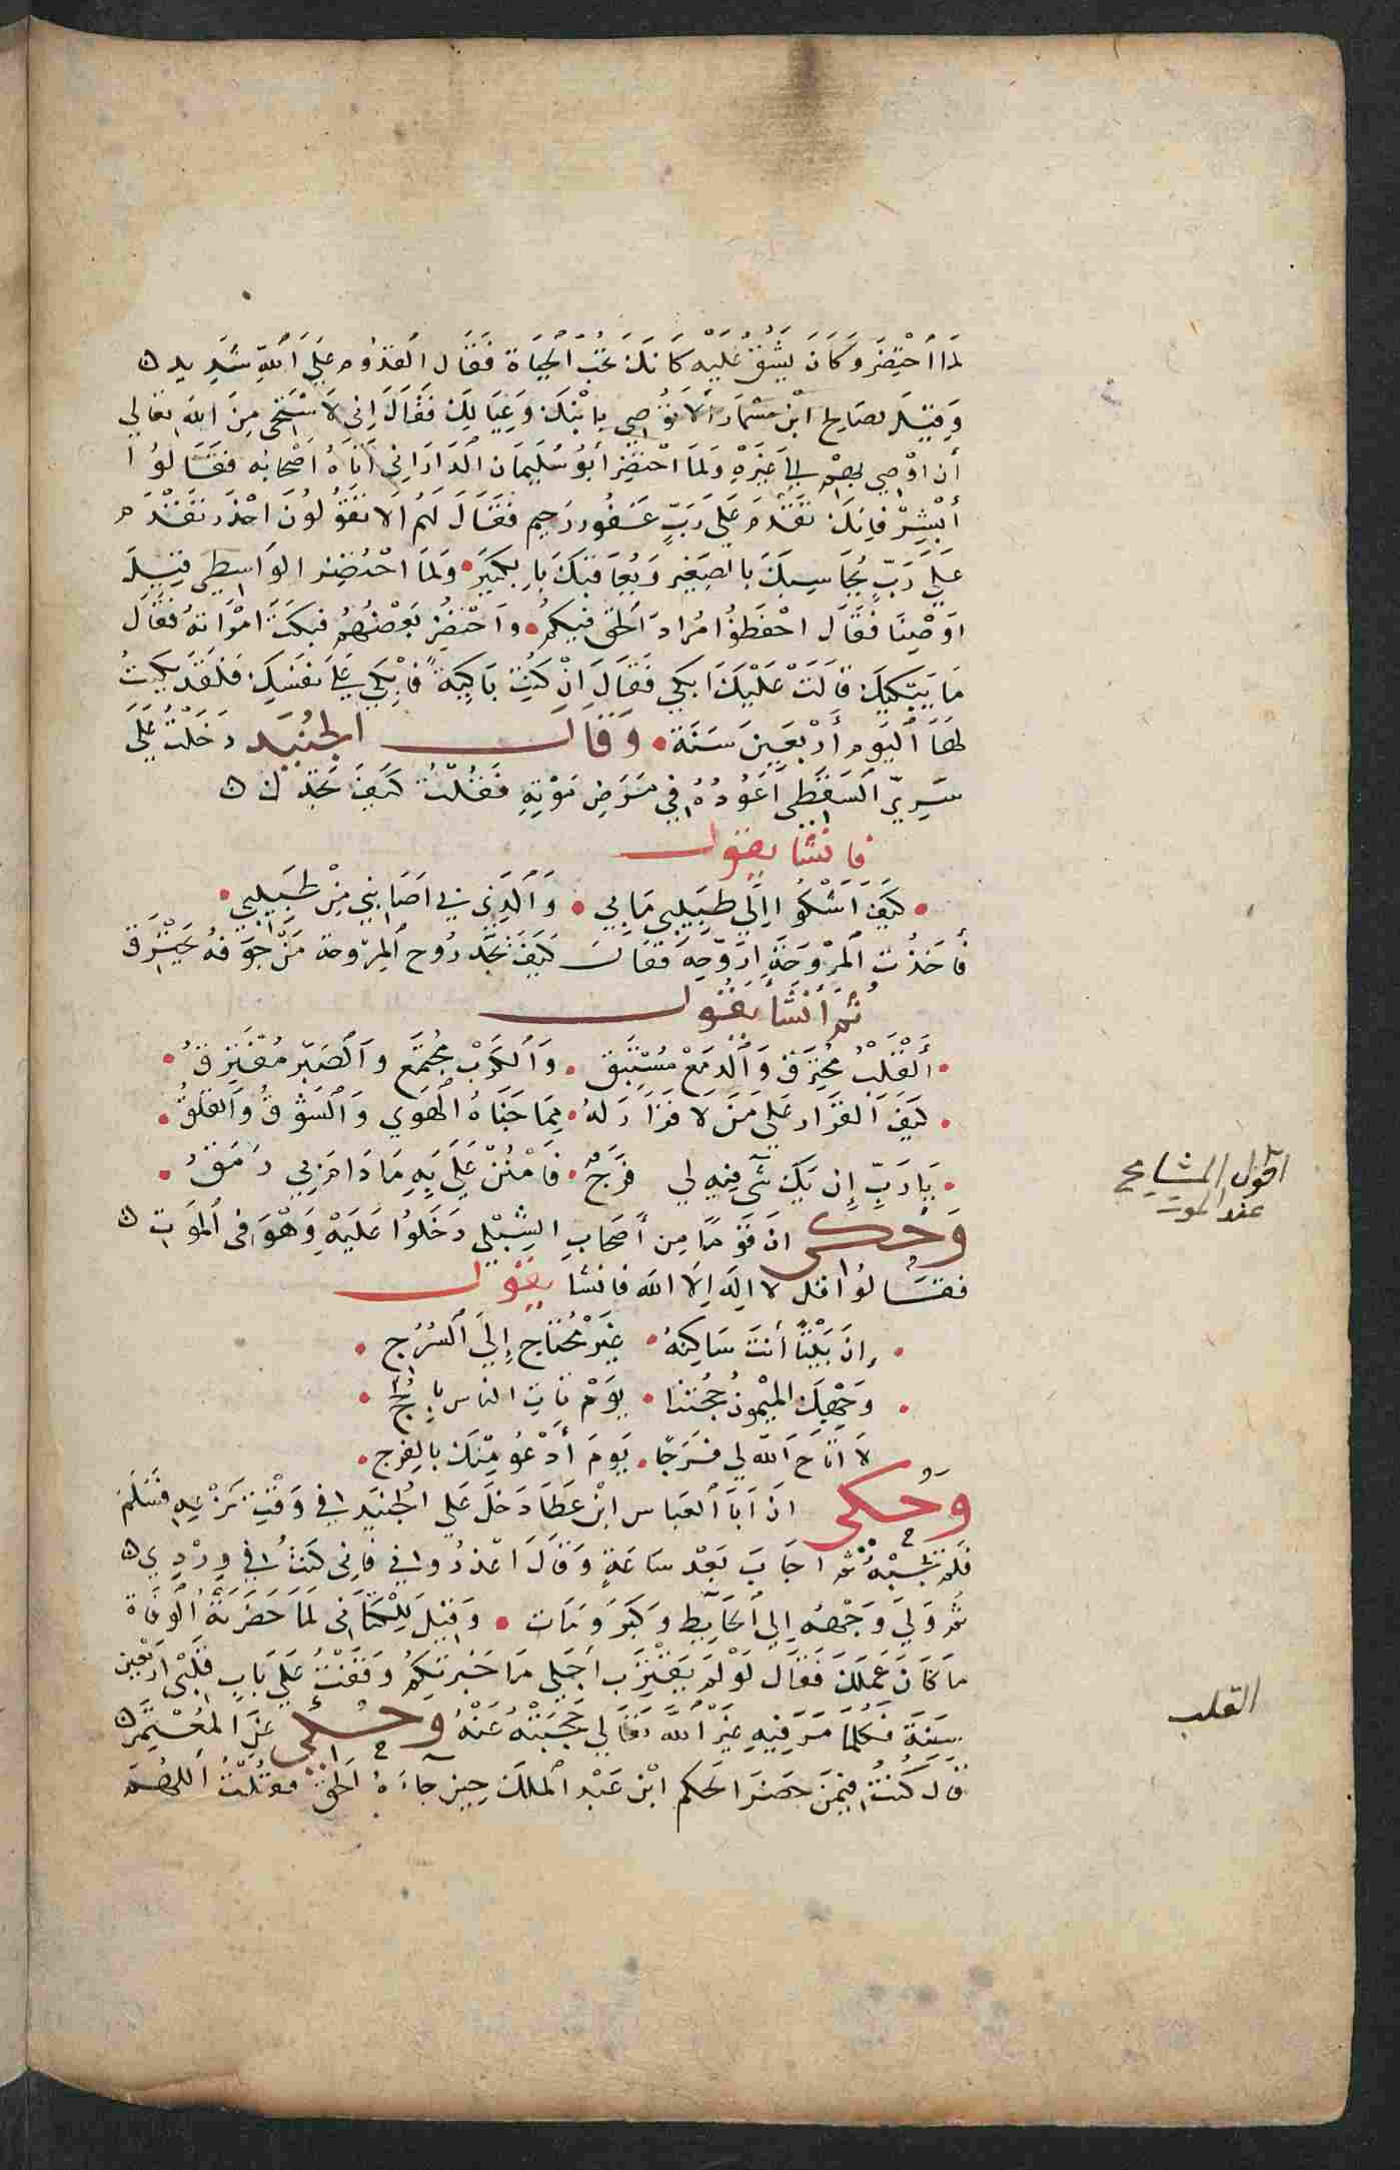 لما احْتُضِرَ وَكَانَ يَشُقُّ عَلَيْهِ كَانَكَ تحُبّ اَلْحَيَاة فَقَال القدُوم عَلَى اَللهِ شَدِيد
وَقيلَ لصَالِح ابْن مسْمَار أَلَا تُوصِي بابْنِكَ وَعِيَالِكَ فَقَالَ اِنِي لَاَسْتَحْيِ مِنَ الله تعَالي
أَن اوْصِي بِهِمْ اِلَى غيْرِهِ وَلمَا احْتُضِرَ أَبُو سُلَيْمَان اَلدَارَانِي أَتَاهُ اَصْحَابُه فَقَالُوُا
أَبْشِرْ فَاِنَكَ تَقْدَمُ عَلَى رَبٍّ غَفُور رَحِيم فَقَالَ لَهُم اَلَا تقُولُونَ احْذَر تَقْدَمُ
عَلَى رَبٍّ يُحَاسِبكَ بالصَغِيْرِ وَيُعَاقِبكَ بَالكَبِيْر وَلمَا احْتُضِرَ الوَاسِطي قيْلَ
اوْصِيْنَا فَقَالَ احْفَظوُا مُرادَ اَلحَق فِيكُمْ وَاحْتُضِرَ بَعْضُهُمْ فَبَكَتْ امْرَاتهُ فَقَال
مَا يبْكيكِ قَالَتْ عَلَيْكَ اَبكي فَقَالَ اِنْ كُنْتِ بَاكِيَة فَابْكِي عَلَى نفْسِكِ فَلَقَدْ بَكيْتُ
لهَذَا اَليَوْم أَرْبَعِينَ سَنَة وَقَالَ الجُنيْد دَخَلْتُ عَلَى
سَرِيّ اَلسَقَطي اَعُوُدُهُ فِي مَرَضِ مَوْتِهِ فَقُلْتُ كَيْفَ تَجِدُكَ
فانشَا يَقوُل
كَيْفَ اَشْكُوا اِلَى طَبِيْبِي مَا بِي وَاَلَذِي اَصَابَنِي مِنْ طَبِيبِي
فَأَخَذْت المرْوَحَة اِرَوّحه فَقَالَ كَيْفَ تجَد رُوح اَلمِرْوَحة مَنْ جَوفهُ يَحْتَرق
ثُمَّ أَنشَأَ يَقُول
أَلْقَلْبُ مُحْتَرِق وَالدمعُ مُسْتَبِق وَاَلكَرْبُ مُجْتَمع وَاَلصَبْرُ مُفْتَرِقُ
كَيْفَ اَلقرَار عَلَى مَنْ لَا قَرَارَ لَهُ ممَا جَنَاهُ الْهَوَى وَاَلشَوْقُ وَاَلقلَقُ
يَا رَبّ إِن يَك شَئ فيهِ لي فَرَجٌ فَامْنُنْ عَلَيَّ بِهِ مَا دَامَ بِي رَمَقُ
وَحُكي انَ قَوْمًا مِن أَصَحَابِ الشِبْلِي دَخَلوُا عَلَيْهِ وَهُوَ فِي اَلمَوْتِ
فقَالُوا قل لا اله الَا الله فانشا يَقوُل
إِنَ بَيْتًا أَنتَ سَاكِنهُ غيْرُ مُحْتَاج إِلَى اَلسُرُج
وَجْهكَ الميْمُونُ حُجتنَا يَوْمَ تَاتي الناس بالحُجَج
لَا اتَاحَ اَللّه لي فَرَجًا يَوْمَ أَدْعُو مِنْكَ بالفَرج
وَحُكي انَ اَبَا اَلعَباس ابْن عَطَا دَخلَ عَلَى الجُنيْد في وَقْتِ نَزْعِهِ فَسَلمَ
فَلَمْ يُجبْهُ ثم اجَابَ بَعْد سَاعَةٍ وَقَالَ اعْذُرُونِي فَاِني كُنْتُ فِي وِرْدِي
ثُم وَلَى وَجْههُ اِلى اَلحَائِط وَكَبَرَ وَمَات وَقيْلَ لِلْكتَانِي لمَا حَضَرتهُ اَلوَفاة
ما كَانَ عَمَلكَ فَقَال لَوْ لَمْ يَقتَرِب أَجَلِي مَا خَبَرْتكُمْ وَقَفْتُ عَلَى بَابِ قَلْبي اَرْبَعِيْن
سَنَة فَكُلمَا مَرَ فِيهِ غيْرُ اَللّه تعَالي حَجَبْتُهُ عَنْهُ وحُكي عَنِ المعْتَمِر
قَال كُنْتُ فِيمَنْ حَضَرَ الحَكم ابْن عَبْد الملك حِين جَاءَهُ الحَق فَقُلْتُ اللهُم
اقول المشايخ
عند الموت
القلب